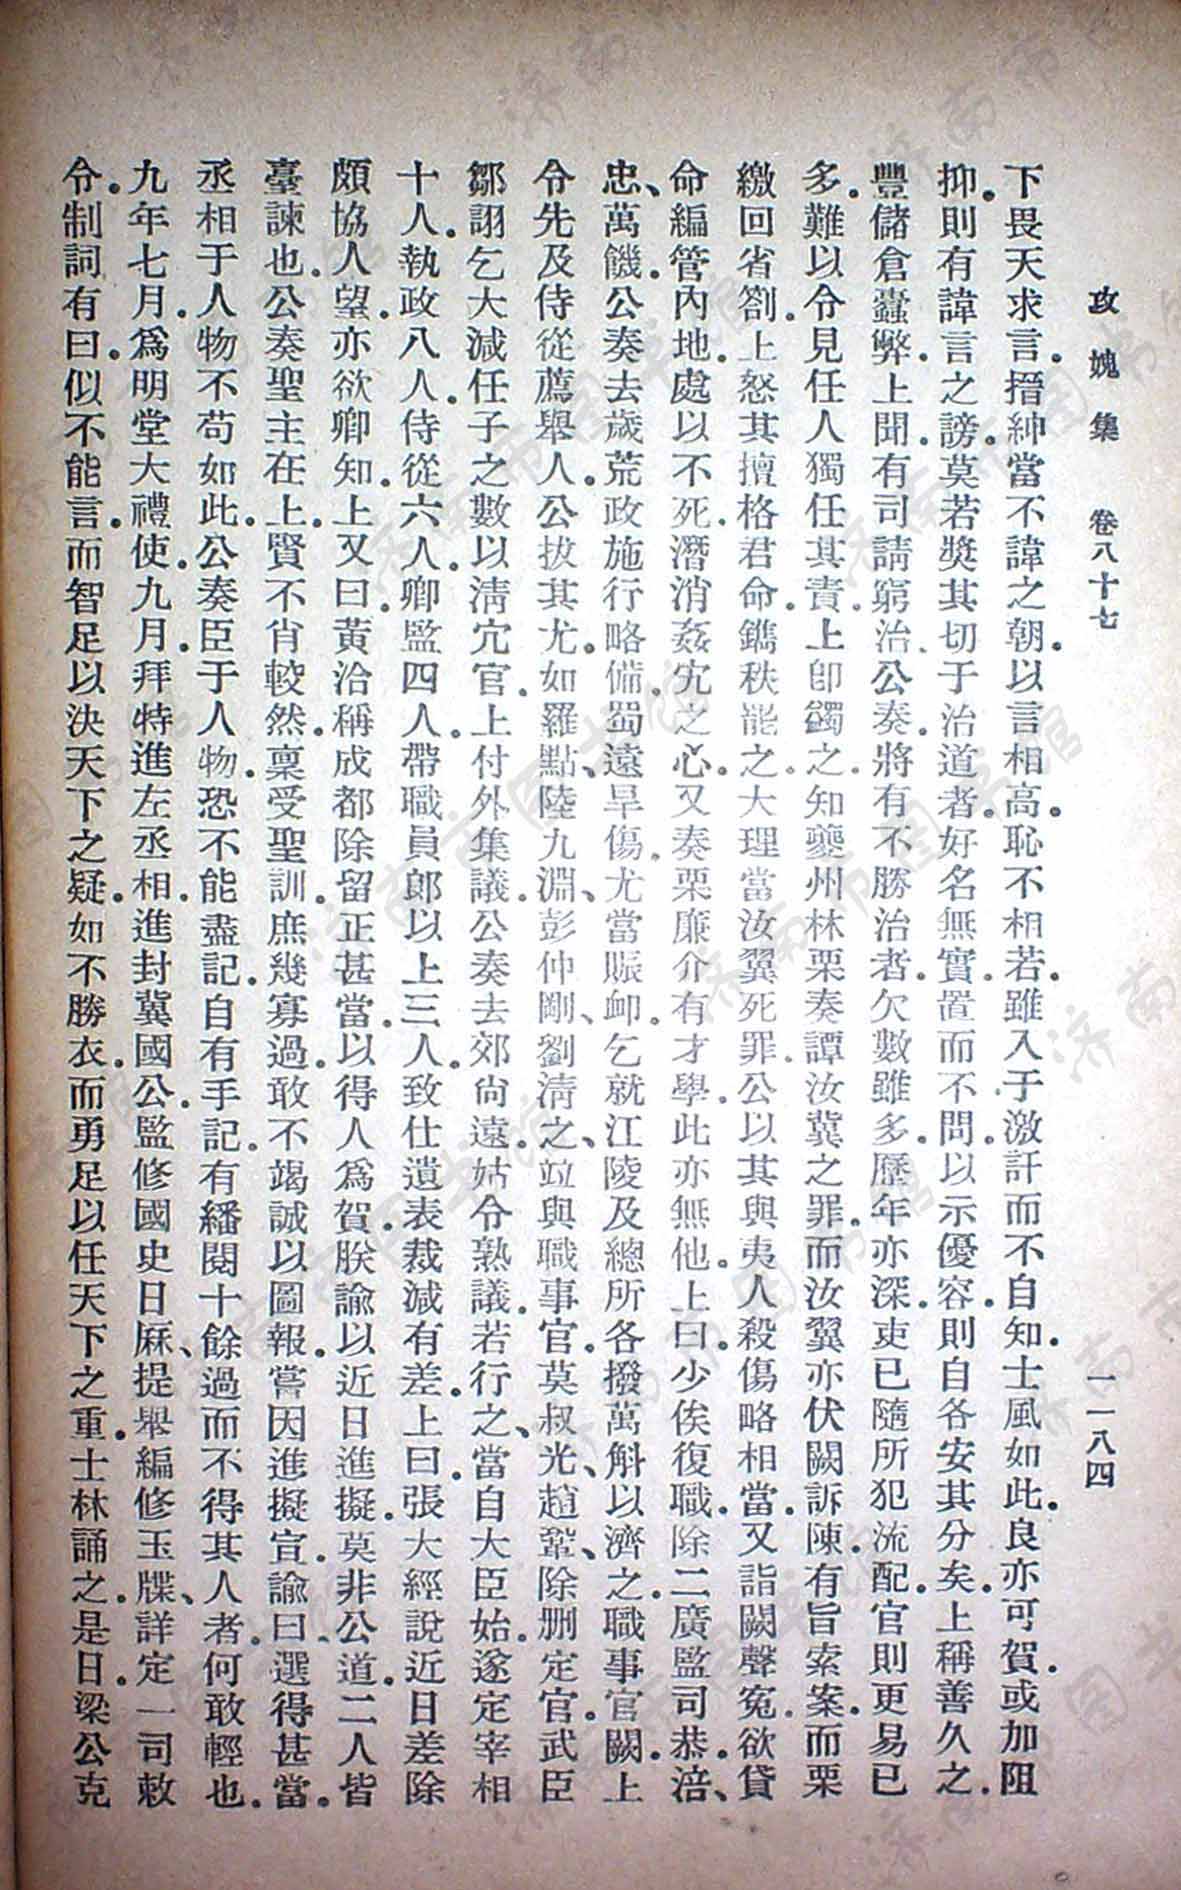 攻媿集　卷八十七　一一八四
下畏天求言。搢紳當不諱之朝。以言相高。恥不相若。雖入于激訐而不自知。士風如此。良亦可賀。或加阻
抑。則有諱言之謗。莫若獎其切于治道者。好名無實。置而不問。以示優容。則自各安其分矣。上稱善久之。
豐儲倉蠹弊。上聞。有司請窮治。公奏。將有不勝治者。欠數雖多。歷年亦深。吏已隨所犯流配。官則更易已
多。難以令見任人獨任其責。上卽蠲之。知夔州林栗奏譚汝翼之罪。而汝翼亦伏闕訴陳。有旨索案。而栗
繳回省劄。上怒其擅格君命。鐫秩罷之。大理當汝翼死罪。公以其與夷人殺傷略相當。又詣闕聲冤。欲貸
命編管內地。處以不死。潛消姦宄之心。又奏栗廉介有才學。此亦無他。上曰。少俟復職。除二廣監司。恭、涪、
忠、萬饑。公奏去歲荒政施行略備。蜀遠旱傷。尤當賑卹。乞就江陵及總所各撥萬斛以濟之。職事官闕。上
令先及侍從薦舉人。公拔其尤。如羅點、陸九淵、彭仲剛、劉淸之、竝與職事官。莫叔光、趙鞏、除删定官。武臣
鄒詡乞大減任子之數。以淸宂官。上付外集議。公奏去郊尙遠。姑令熟議。若行之、當自大臣始。遂定宰相
十人。執政八人。侍從六人。卿監四人。帶職員郞以上三人。致仕遺表裁減有差。上曰。張大經說近日差除
頗協人望。亦欲卿知。上又曰。黃洽稱成都除留正甚當。以得人爲賀。朕諭以近日進擬。莫非公道。二人皆
臺諫也。公奏聖主在上。賢不肖較然。稟受聖訓。庶幾寡過。敢不竭誠以圖報。嘗因進擬。宣諭曰。選得甚當。
丞相于人物不苟如此。公奏臣于人物。恐不能盡記。自有手記。有繙閱十餘過而不得其人者。何敢輕也。
九年七月。爲明堂大禮使。九月。拜特進左丞相。進封冀國公。監修國史日厤、提舉編修玉牒、詳定一司敕
令。制詞有曰。似不能言。而智足以決天下之疑。如不勝衣。而勇足以任天下之重。士林誦之。是日。梁公克